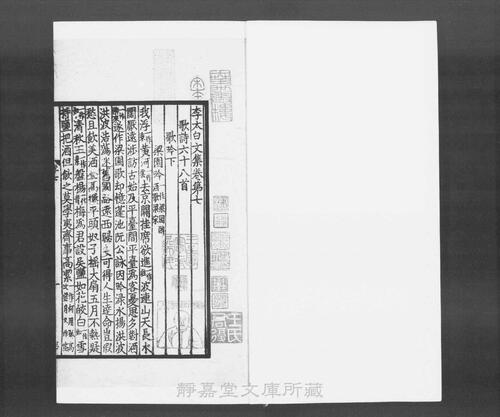 李太白文集卷第七
歌詩六十八首
歌吟下
梁園吟
我浮黃河去京關挂席欲進波連山天長水
闊厭遠涉訪古始及平臺間平臺爲客憂思多對酒
遂作梁園歌却憶蓬池阮公詠因吟淥水揚洪波
洪波浩蕩迷舊國路遠西歸可得人生達命豈假
愁且飲美酒登高樓平頭奴子搖大扇五月不熱疑
清秋玉盤楊梅爲君設吳鹽如花皎白雪
持鹽把酒但飲之莫學夷齊事高潔
宋本
靜嘉堂文庫所藏